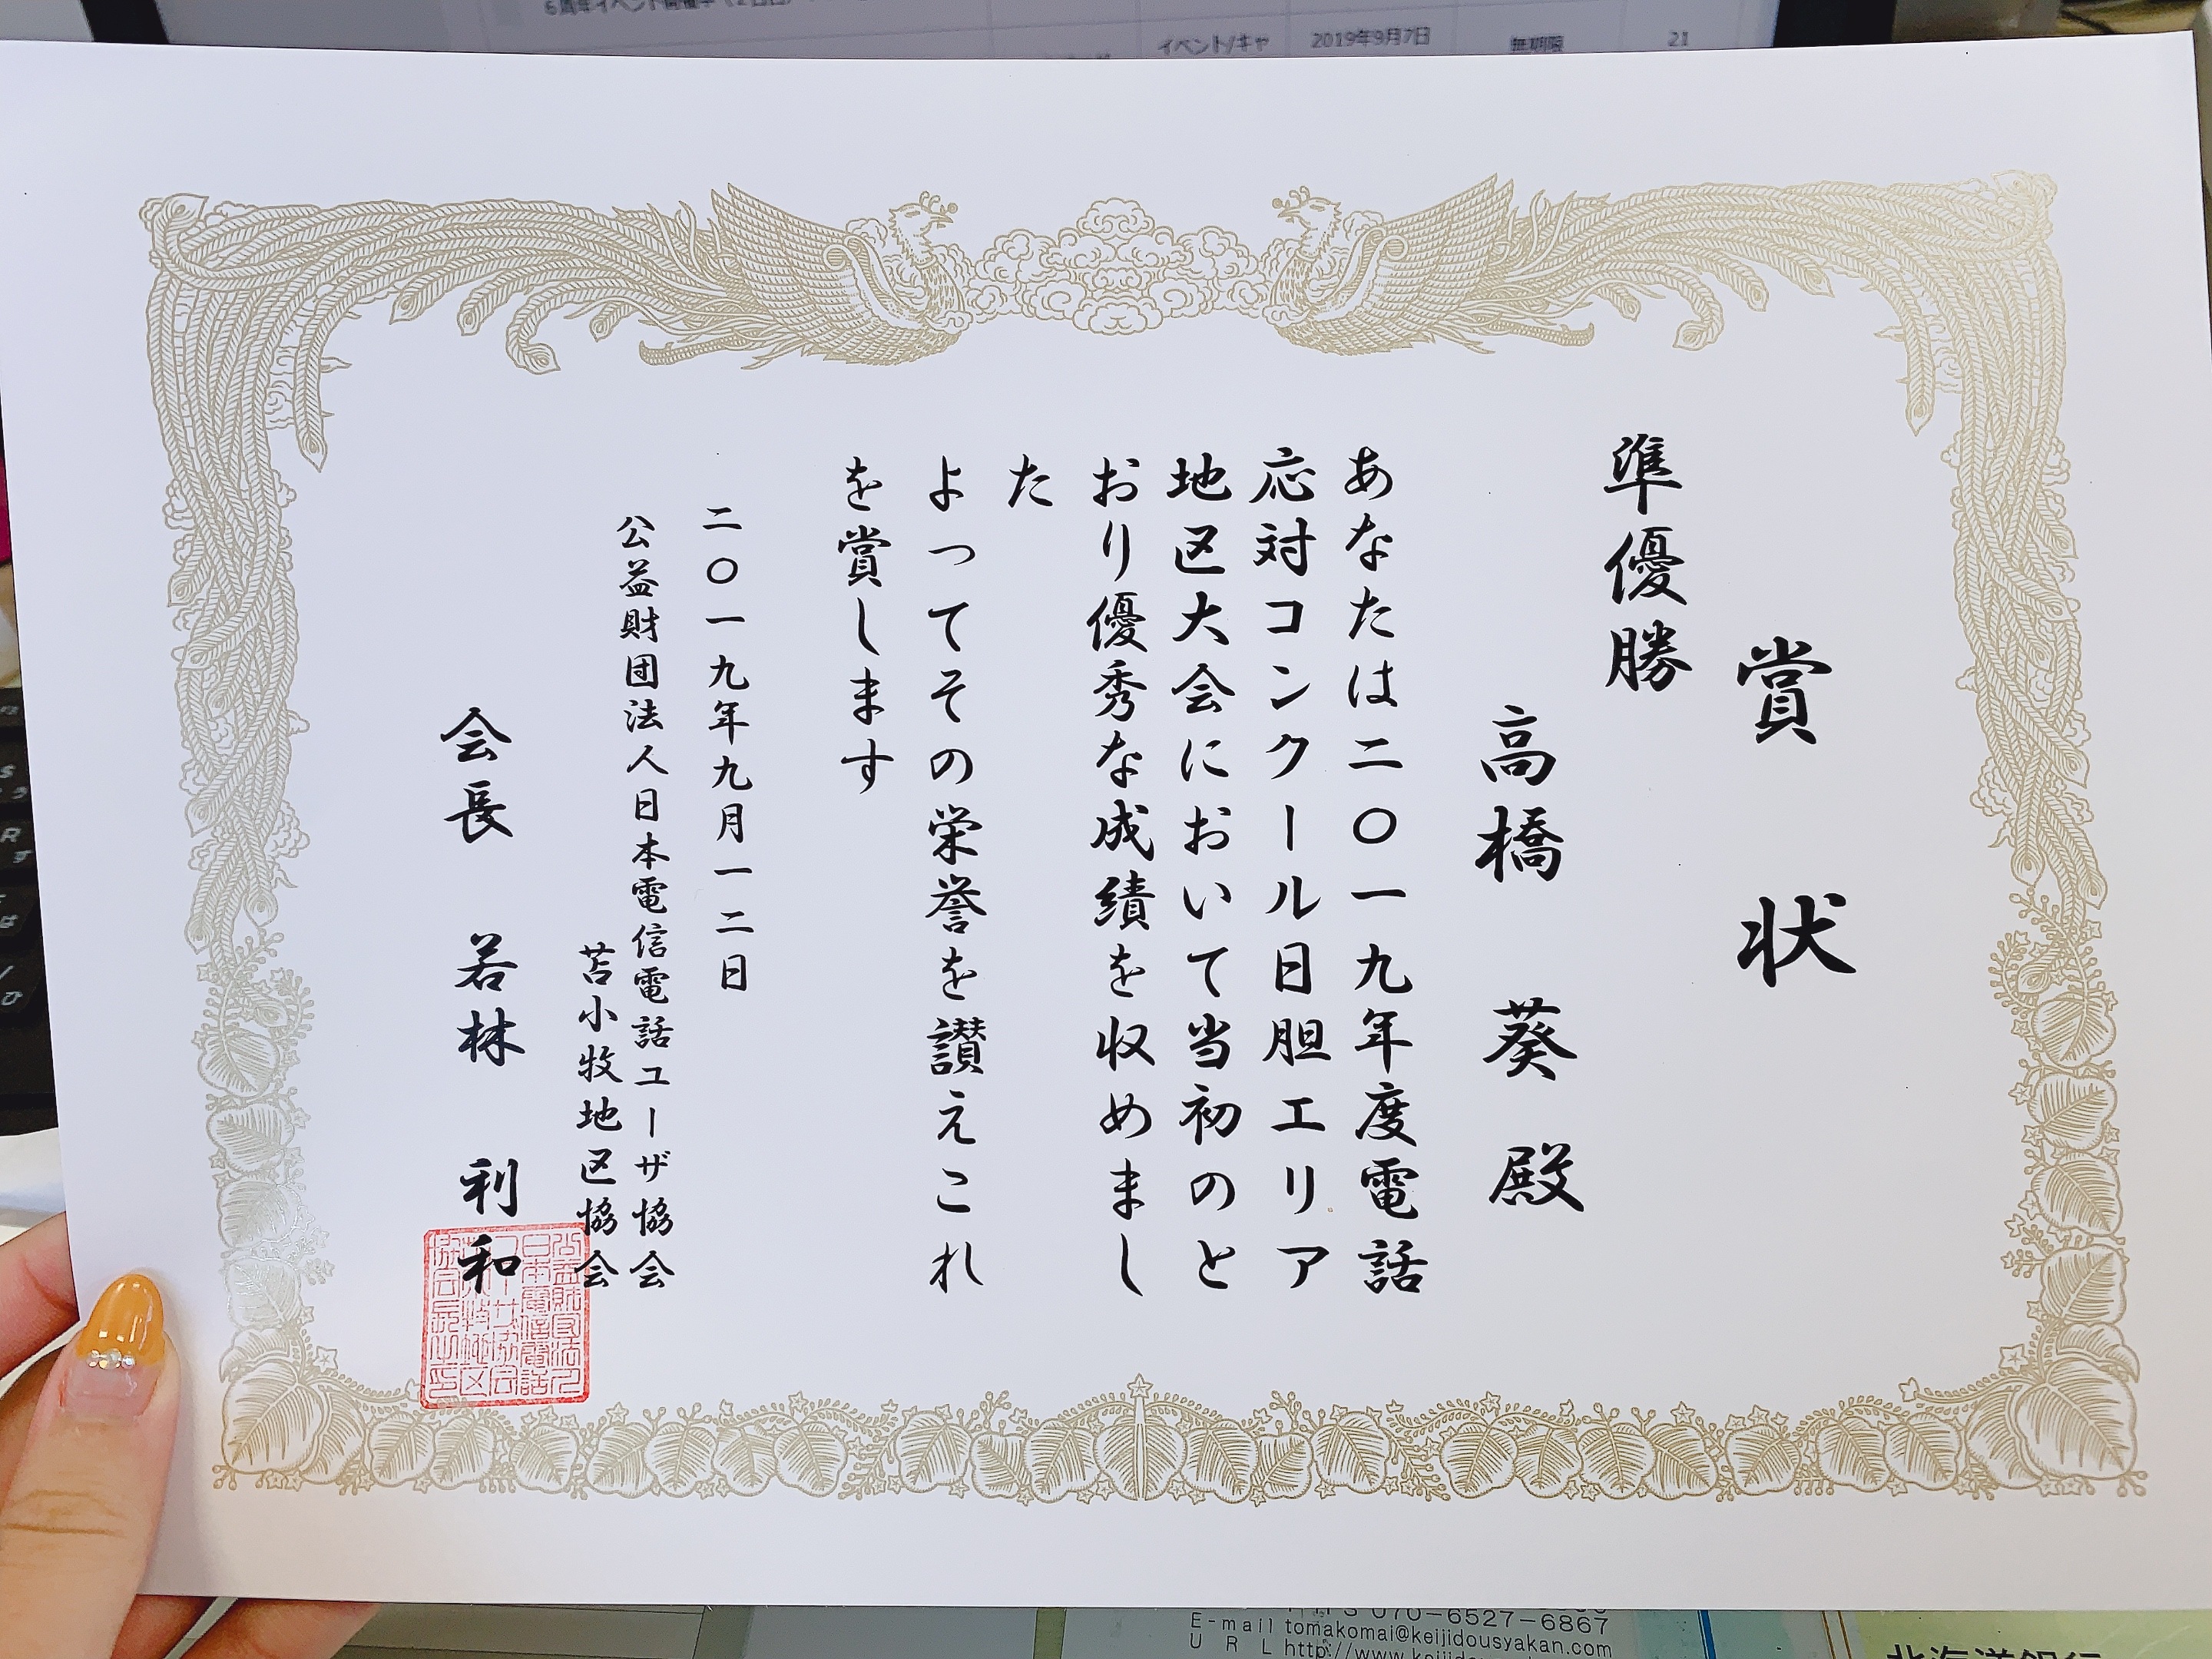 6周年イベント開催中(2日目)
イベント/キャ
2019年9月7日
無期限
21
賞状
準優勝
高橋 葵 殿
あなたは二〇一九年度電話
応対コンクール日胆エリア
地区大会において当初のと
おり優秀な成績を収めまし
た
よってその栄誉を讃えこれ
を賞します
二〇一九年九月一二日
公益財団法人日本電信電話ユーザ協会
苫小牧地区協会
会長 若林 利和
公益財団法人
日本電信電話
ユーザ協会
苫小牧地区
協会長之印
070-6527-6867
E-mail tomakomai@keijidousyakan.com
URL http://www.keijidousyakan.com
北海道銀行